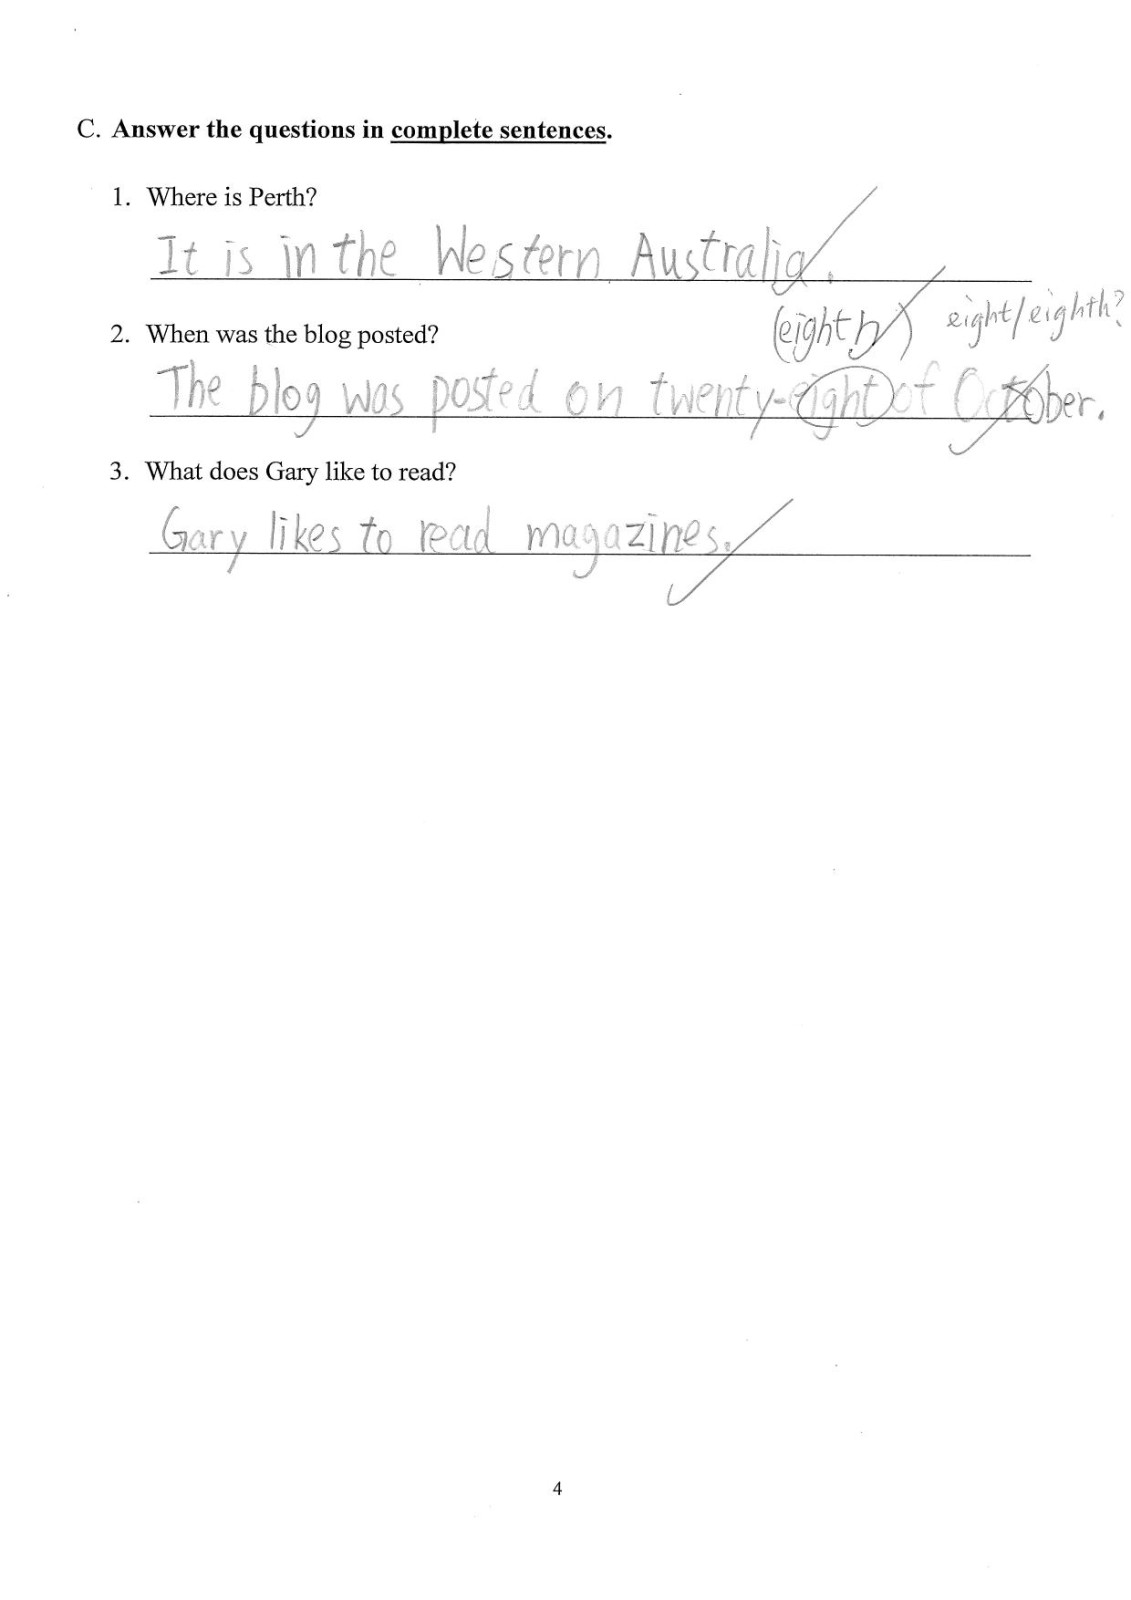 C. Answer the questions in complete sentences.
1. Where is Perth?
It is in the Western Australia.
2. When was the blog posted?
(eighth) eight/eighth?
The blog was posted on twenty-eight of October.
3. What does Gary like to read?
Gary likes to read magazines.
4